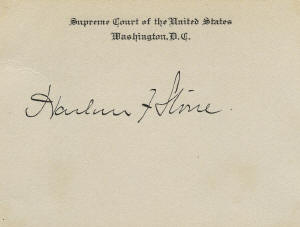 Supreme Court of the United States
Washington, D.C.
Harlan F Stone.